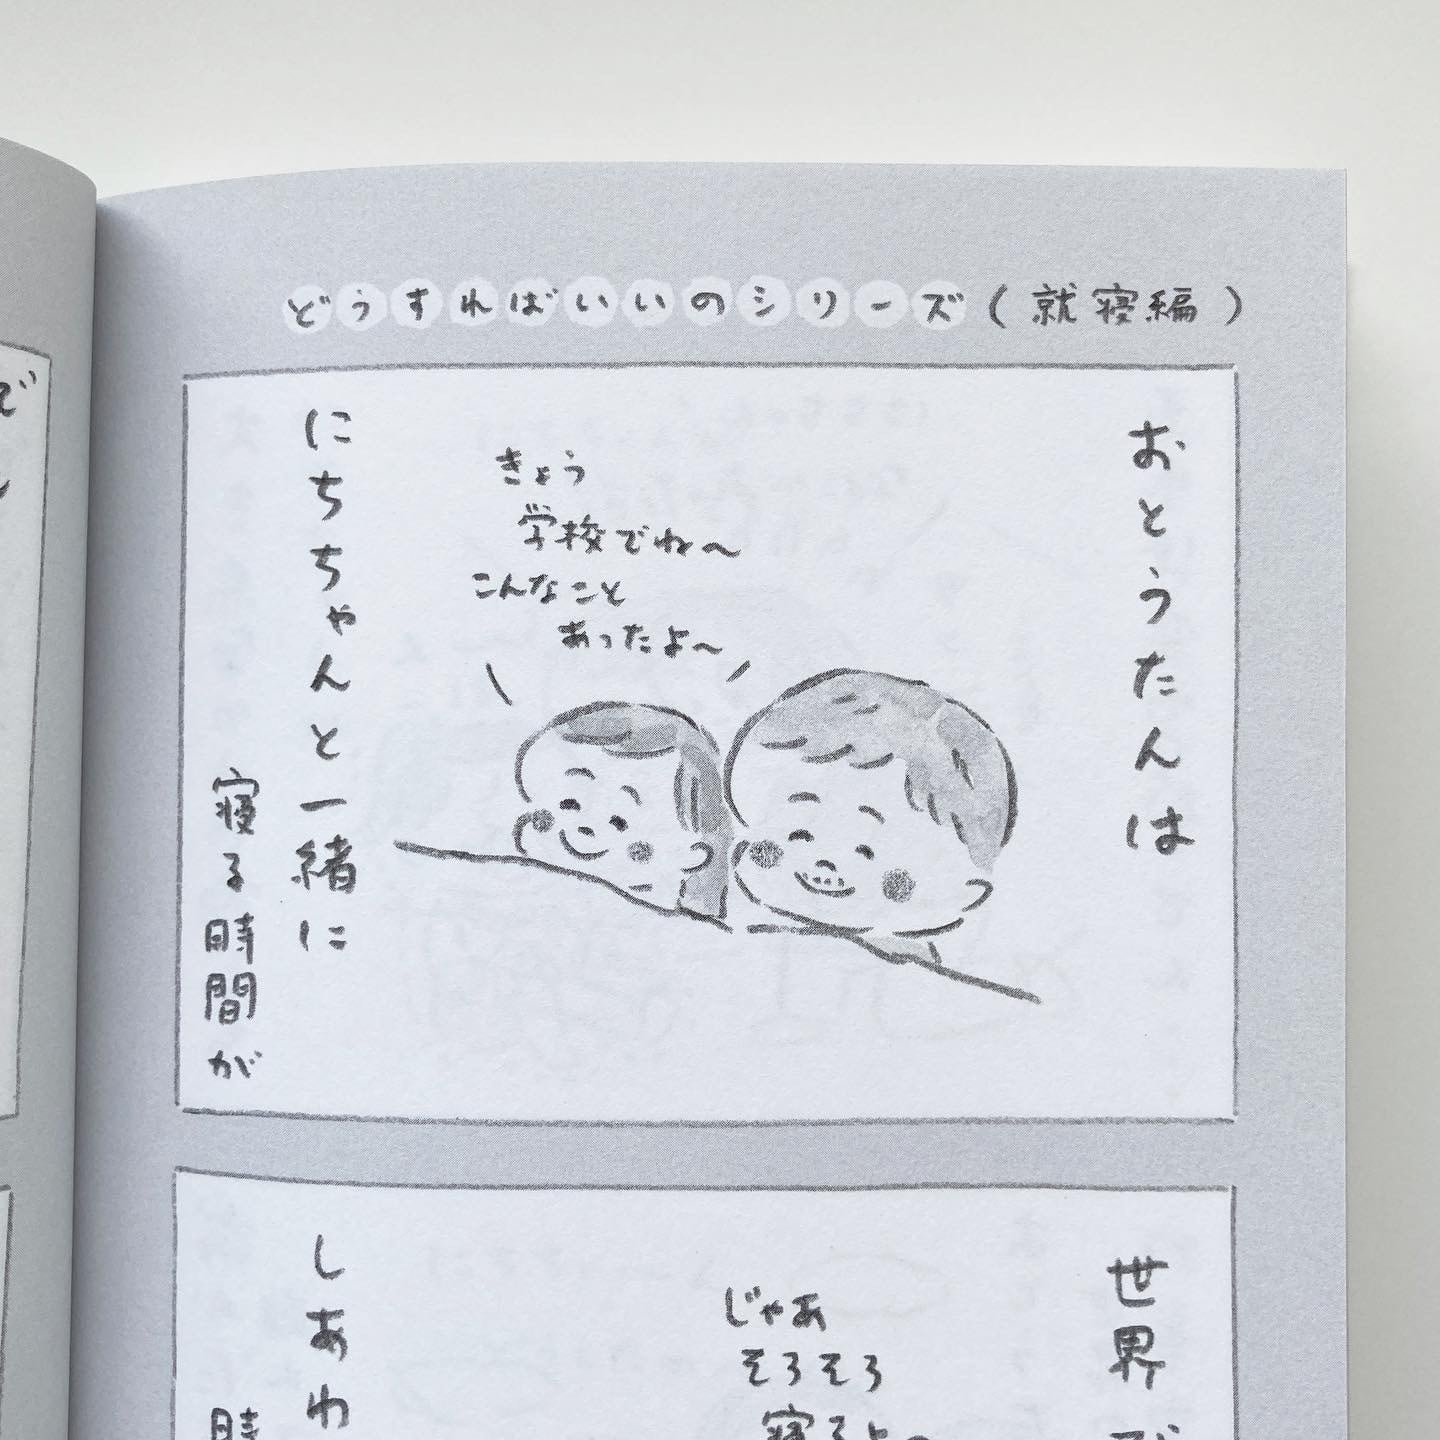 どうすればいいのシリーズ(就寝編)
おとうたんは
きょう
学校でね〜
こんなこと
あったよ〜
にちちゃんと一緒に
寝る時間が
世界
じゃあ
そろそろ
寝るよ〜
しあわ
時
で